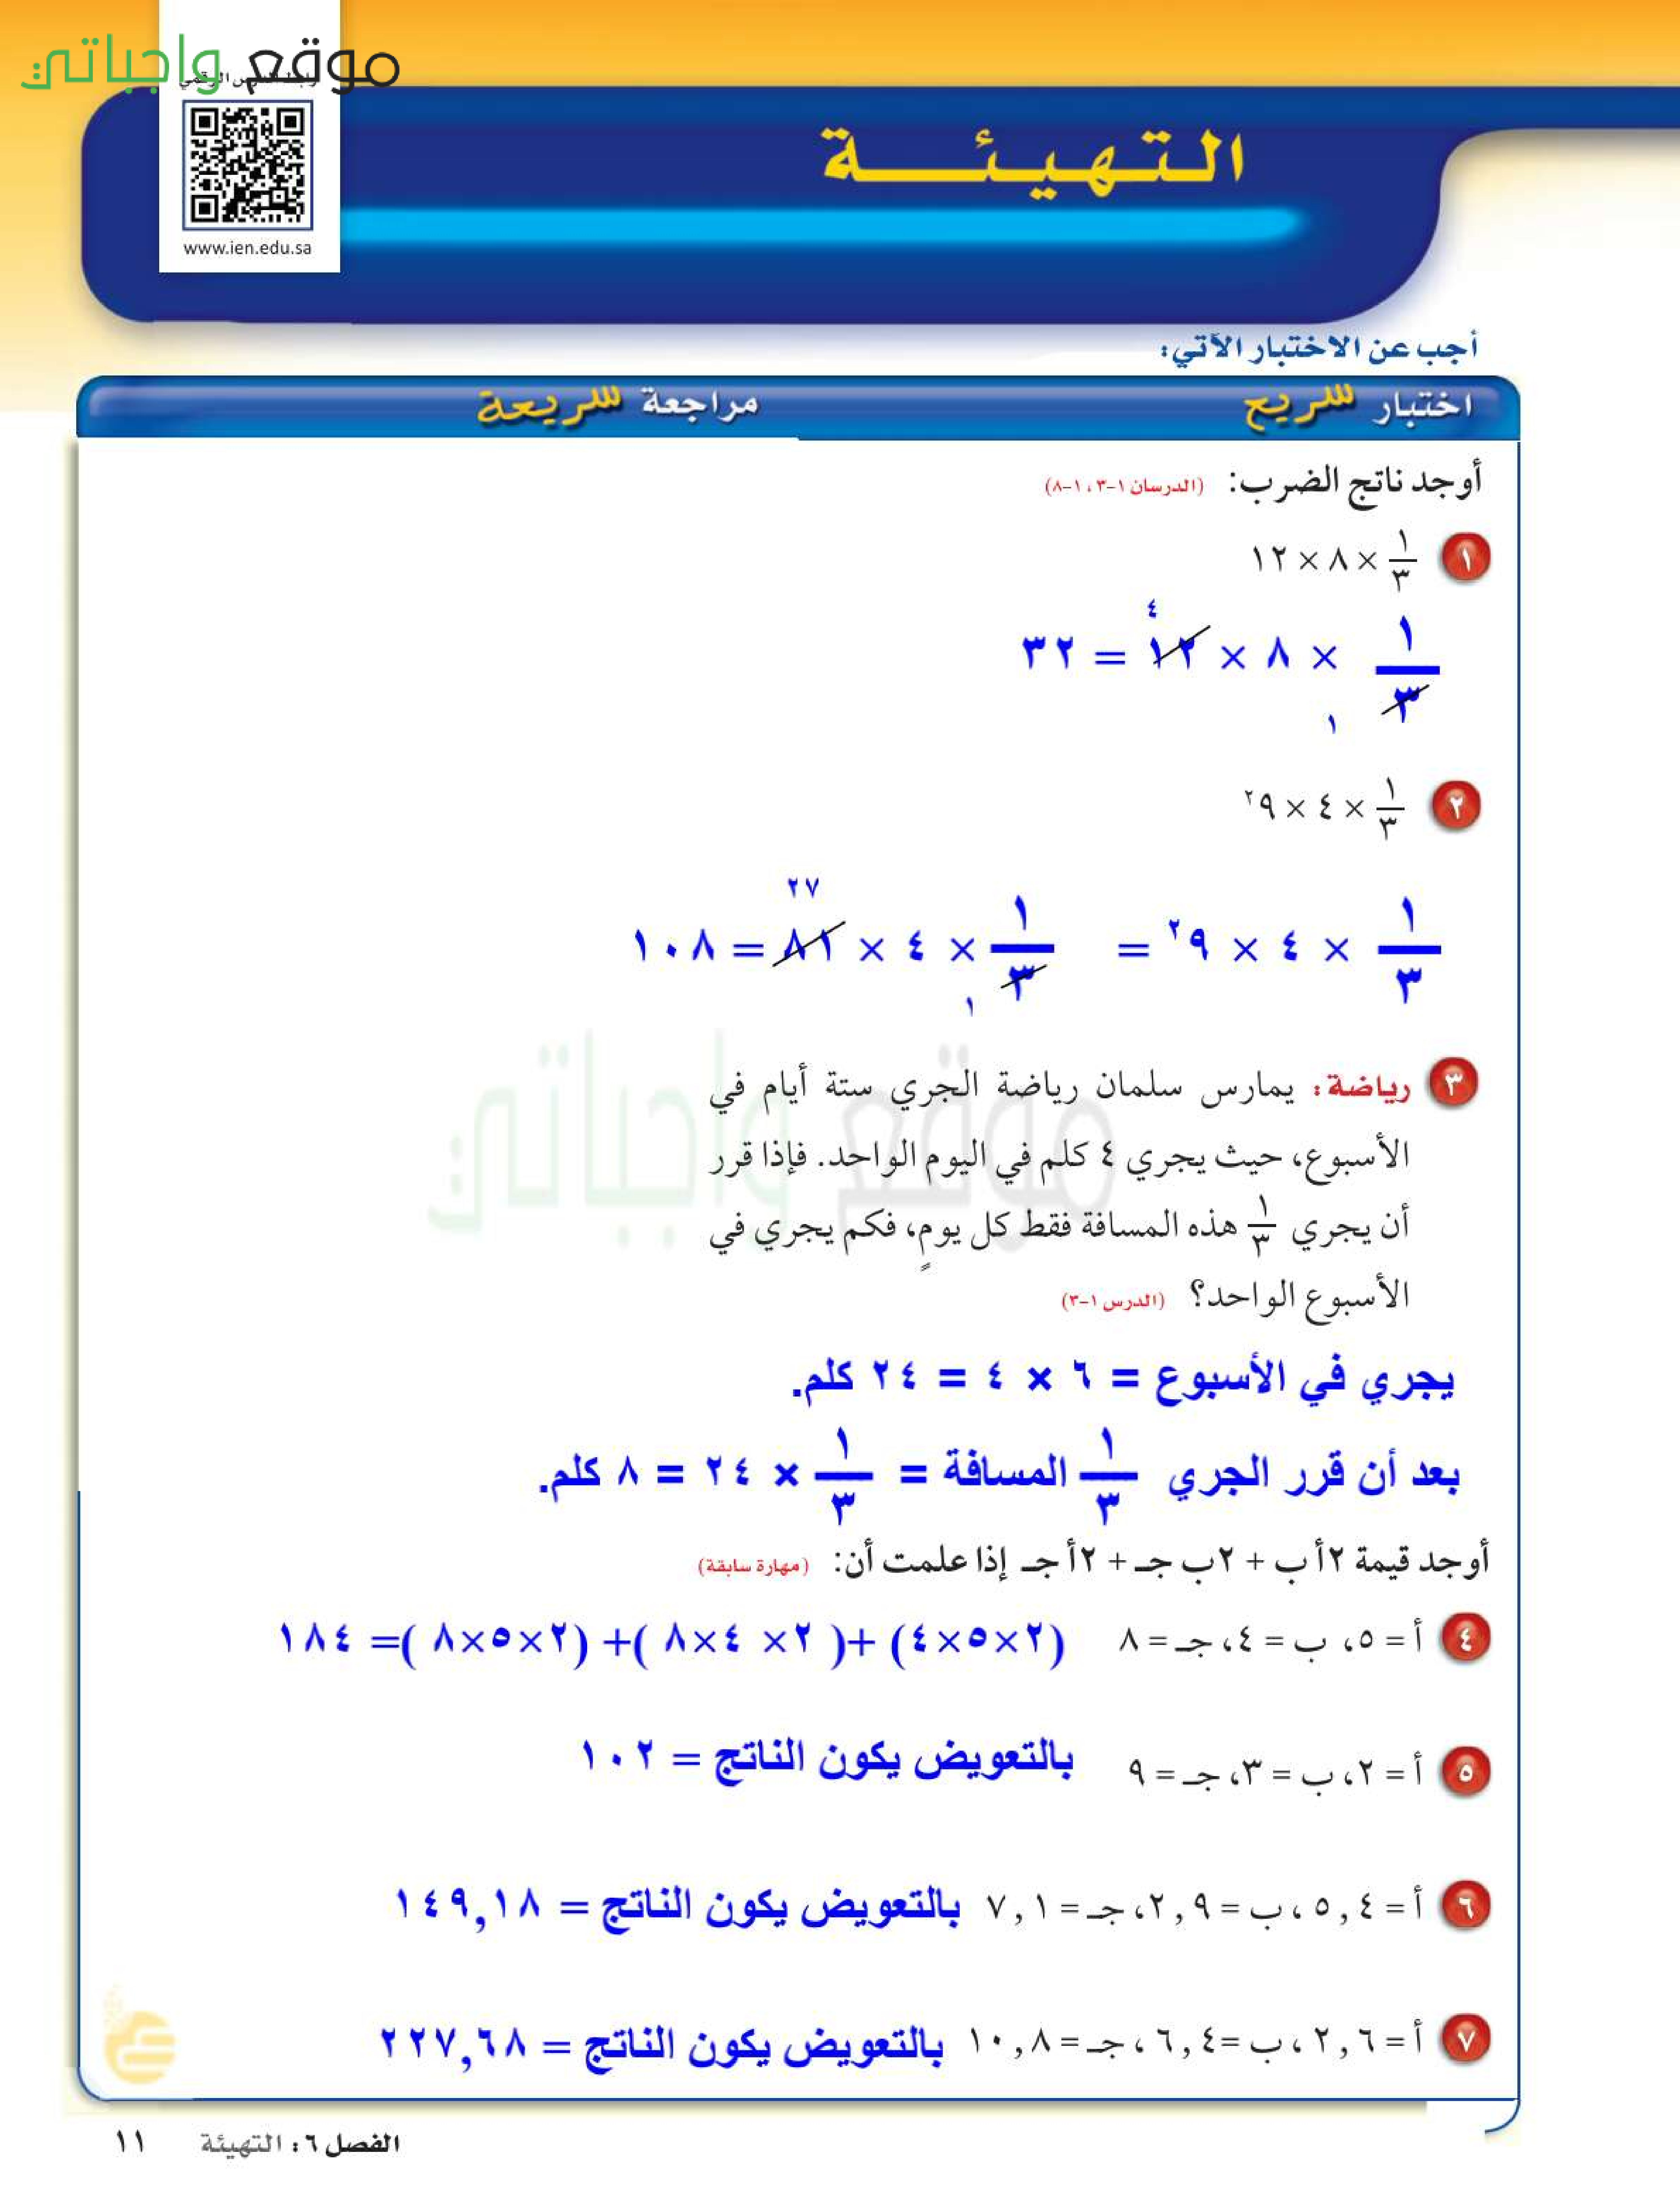 موقع واجباتي
www.ien.edu.sa
التهيئة
أجب عن الاختبار الآتي:
اختبار سريع
مراجعة سريعة
أوجد ناتج الضرب: (الدرسان ١-٣، ١-٨)
١ ١/٣ × ٨ × ١٢
١/٣ × ٨ × ١٢ = ٣٢
٤
١
٢ ١/٣ × ٤ × ٩²
١/٣ × ٤ × ٩² = ١/٣ × ٤ × ٨١ = ١٠٨
٢٧
١
٣ رياضة: يمارس سلمان رياضة الجري ستة أيام في
الأسبوع، حيث يجري ٤ كلم في اليوم الواحد. فإذا قرر
أن يجري ١/٣ هذه المسافة فقط كل يومٍ، فكم يجري في
الأسبوع الواحد؟ (الدرس ١-٣)
يجري في الأسبوع = ٦ × ٤ = ٢٤ كلم.
بعد أن قرر الجري ١/٣ المسافة = ١/٣ × ٢٤ = ٨ كلم.
أوجد قيمة ٢أ ب + ٢ب جـ + ٢أ جـ إذا علمت أن: (مهارة سابقة)
٤ أ = ٥، ب = ٤، جـ = ٨ (٢×٥×٤) +( ٢× ٤×٨ )+ (٢×٥×٨ )= ١٨٤
٥ أ = ٢، ب = ٣، جـ = ٩ بالتعويض يكون الناتج = ١٠٢
٦ أ = ٥,٤، ب = ٢,٩، جـ = ٧,١ بالتعويض يكون الناتج = ١٤٩,١٨
٧ أ = ٢,٦، ب =٦,٤، جـ = ١٠,٨ بالتعويض يكون الناتج = ٢٢٧,٦٨
الفصل ٦: التهيئة ١١